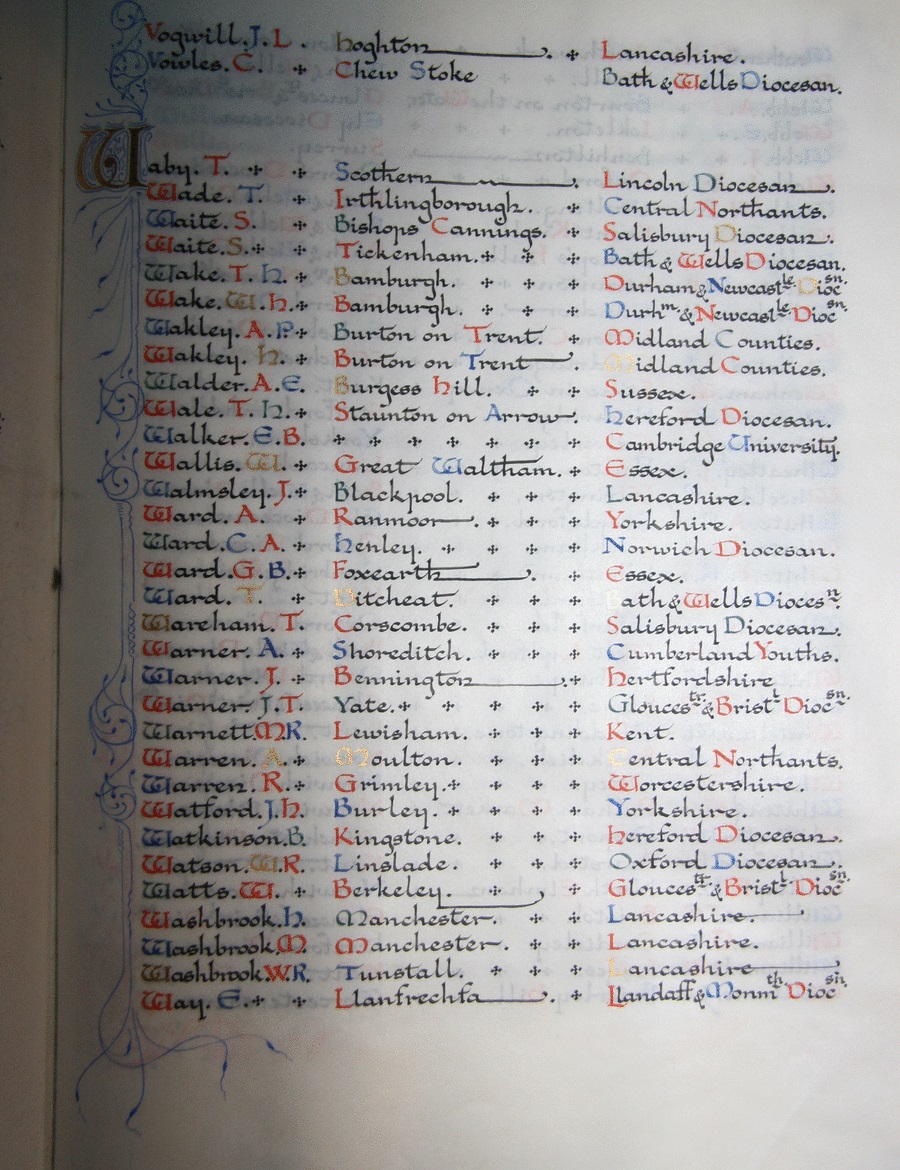 Vogwill. J. L. Hoghton. Lancashire.
Vowles. C. Chew Stoke Bath & Wells Diocesan.
Waby. T. Scothern. Lincoln Diocesan.
Wade. T. Irthlingborough. Central Northants.
Waite. S. Bishops Cannings. Salisbury Diocesan.
Waite. S. Tickenham. Bath & Wells Diocesan.
Wake. T. H. Bamburgh. Durham & Newcastle Diocsn.
Wake. W. H. Bamburgh. Durhm & Newcastle Diocsn.
Wakley. A. P. Burton on Trent. Midland Counties.
Wakley. H. Burton on Trent Midland Counties.
Walder. A. E. Burgess Hill. Sussex.
Wale. T. H. Staunton on Arrow. Hereford Diocesan.
Walker. E. B. Cambridge University.
Wallis. W. Great Waltham. Essex.
Walmsley. J. Blackpool. Lancashire.
Ward. A. Ranmoor. Yorkshire.
Ward. C. A. Henley. Norwich Diocesan.
Ward. G. B. Foxearth. Essex.
Ward. T. Ditcheat. Bath & Wells Diocesn.
Wareham. T. Corscombe. Salisbury Diocesan.
Warner. A. Shoreditch. Cumberland Youths.
Warner. J. Bennington. Hertfordshire
Warner. J. T. Yate. Gloucestr & Bristl Diocsn.
Warnett. M. R. Lewisham. Kent.
Warren. A. Moulton. Central Northants.
Warren. R. Grimley. Worcestershire.
Watford. J. H. Burley. Yorkshire.
Watkinson. B. Kingstone. Hereford Diocesan.
Watson. W. R. Linslade. Oxford Diocesan.
Watts. W. Berkeley. Gloucestr & Bristl Diocsn.
Washbrook. H. Manchester. Lancashire.
Washbrook. M. Manchester. Lancashire.
Washbrook W. R. Tunstall. Lancashire
Way. E. Llanfrechfa. Llandaff & Monmth Diocsn.